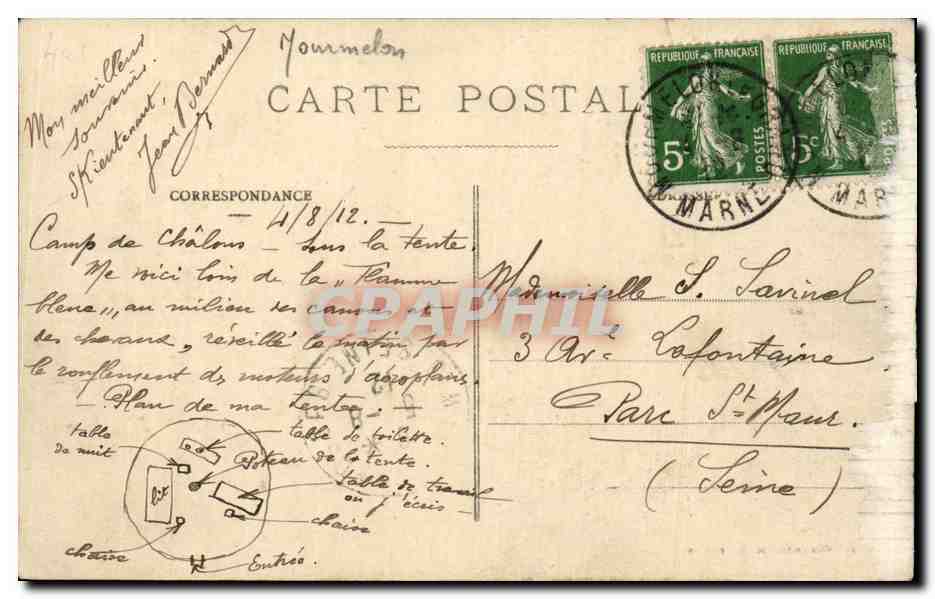 Mourmelon
CARTE POSTALE
Mon meilleur
souvenir.
Jean Bernard
RÉPUBLIQUE FRANÇAISE
5c
POSTES
RÉPUBLIQUE FRANÇAISE
5c
MARNE
MARNE
CORRESPONDANCE
4/8/12. —
Camp de Châlons — sous la tente.
Me voici loin de la "Flamme
bleue", au milieu des canons et
des chevaux, réveillé le matin par
le ronflement des moteurs d'aéroplanes.
— Plan de ma tente. —
table de nuit
table de toilette.
Poteau de la tente.
lit
table de travail
où j'écris
chaise
chaise
Entrée.
Mademoiselle S. Savinel
3 Av.e Lafontaine
Parc St Maur.
(Seine)
CPAPHIL